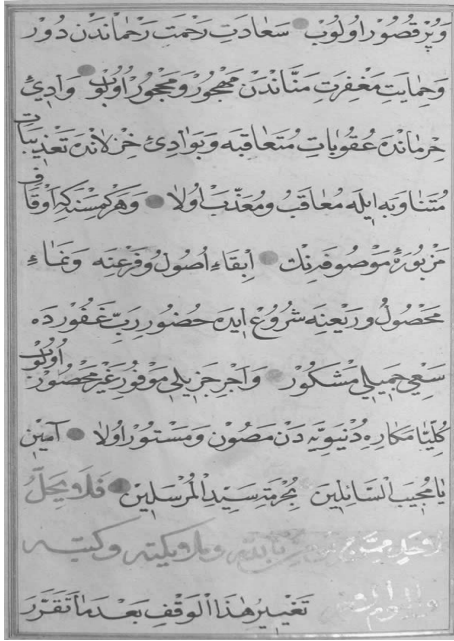 وپر قصور اولوب سعادت رحمت رحماندن دور
وحمايت مغفرت مناندن مهجور ومحجور اولوب وادئ
حرمانده عقوبات متعاقبه وبوادئ خذلانده تعذيبات
متناوبه ايله معاقب ومعذب اولا وهر كمسنه كه اوقاف
مزبورۀ موصوفه نك ابقاء اصول وفرعنه ونماء
محصول وريعنه شروع ايده حضور رب غفورده
سعي جميلي مشكور واجر جزيلي موفور غير محصور اولوب
كليا مكاره دنيويه دن مصون ومستور اولا آمين
يا مجيب السائلين بحرمة سيد المرسلين فلا يحل
وملايكته وكتبه
تغيير هذا الوقف بعد ما تقرر